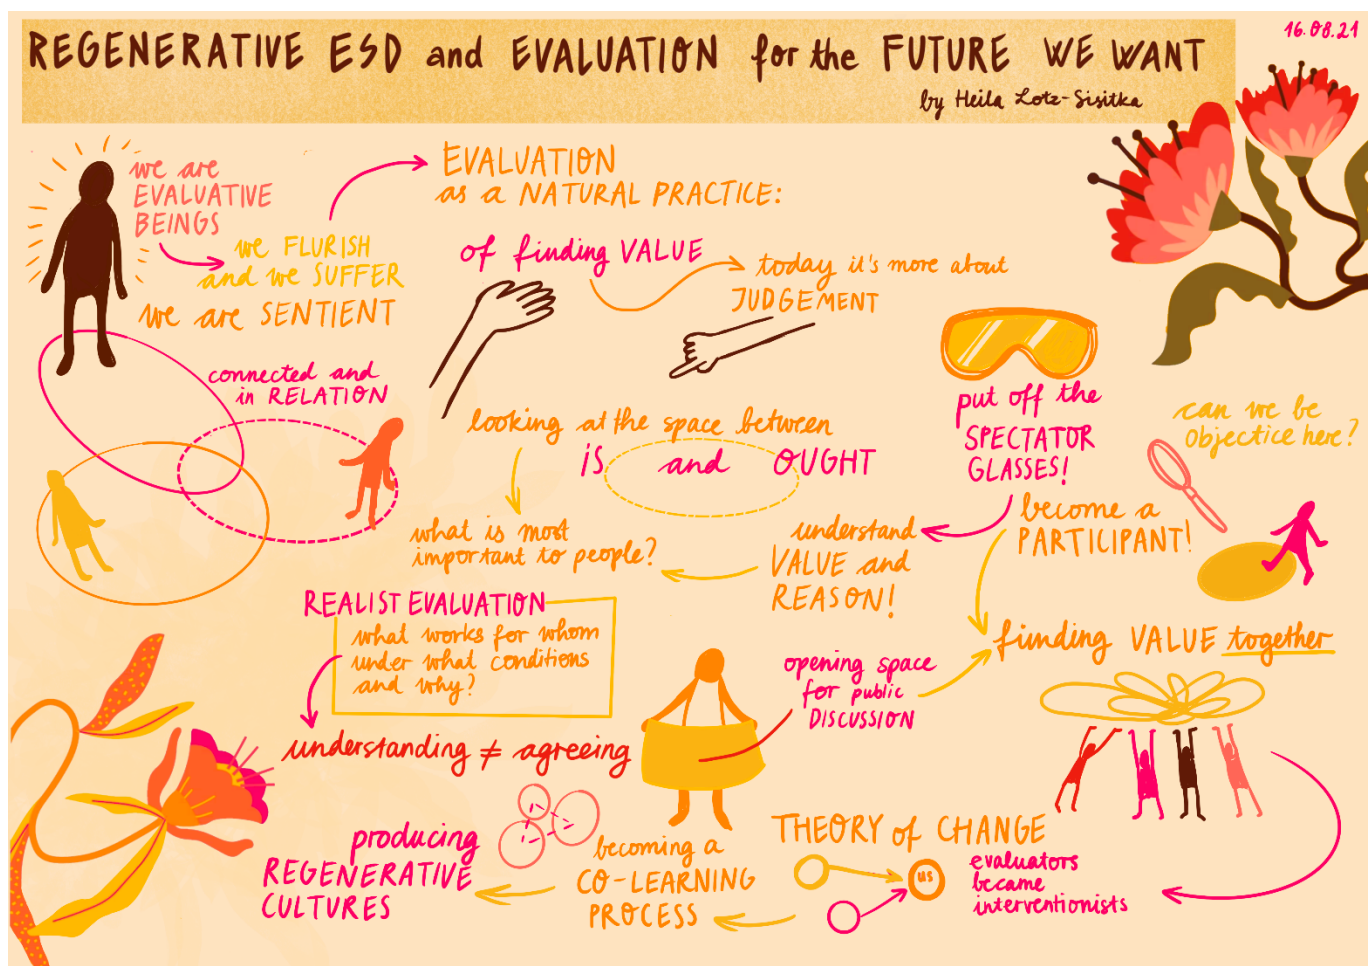 REGENERATIVE ESD and EVALUATION for the FUTURE WE WANT
by Heila Lotz-Sisitka
16.08.21
we are
EVALUATIVE
BEINGS
we FLURISH
and we SUFFER
we are SENTIENT
connected and
in RELATION
EVALUATION
as a NATURAL PRACTICE:
of finding VALUE
today it's more about
JUDGEMENT
looking at the space between
IS and OUGHT
what is most
important to people?
put off the
SPECTATOR
GLASSES!
can we be
objectice here?
become a
PARTICIPANT!
understand
VALUE and
REASON!
REALIST EVALUATION
what works for whom
under what conditions
and why?
understanding ≠ agreeing
opening space
for public
DISCUSSION
finding VALUE together
THEORY of CHANGE
us
evaluators
became
interventionists
becoming a
CO-LEARNING
PROCESS
producing
REGENERATIVE
CULTURES